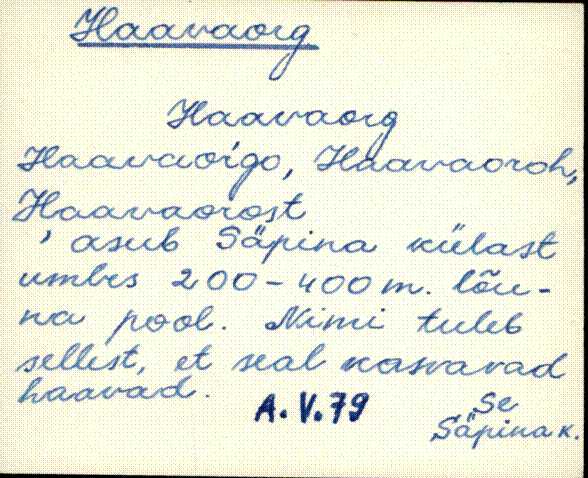 Haavaorg
Haavaorg
Haavaorgo, Haavaoroh,
Haavaorost
' asub Säpina külast
umbes 200-400 m. lõu-
na pool. Nimi tuleb
sellest, et seal kasvavad
haavad.
A.V.79
Se
Säpina k.